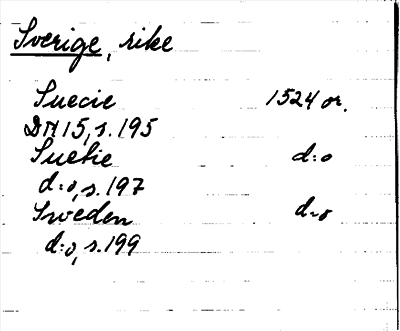 Sverige, rike
Suecie 1524 or.
DN 15, s. 195
Suetie d:o
d:o, s. 197
Sweden d:o
d:o, s. 199